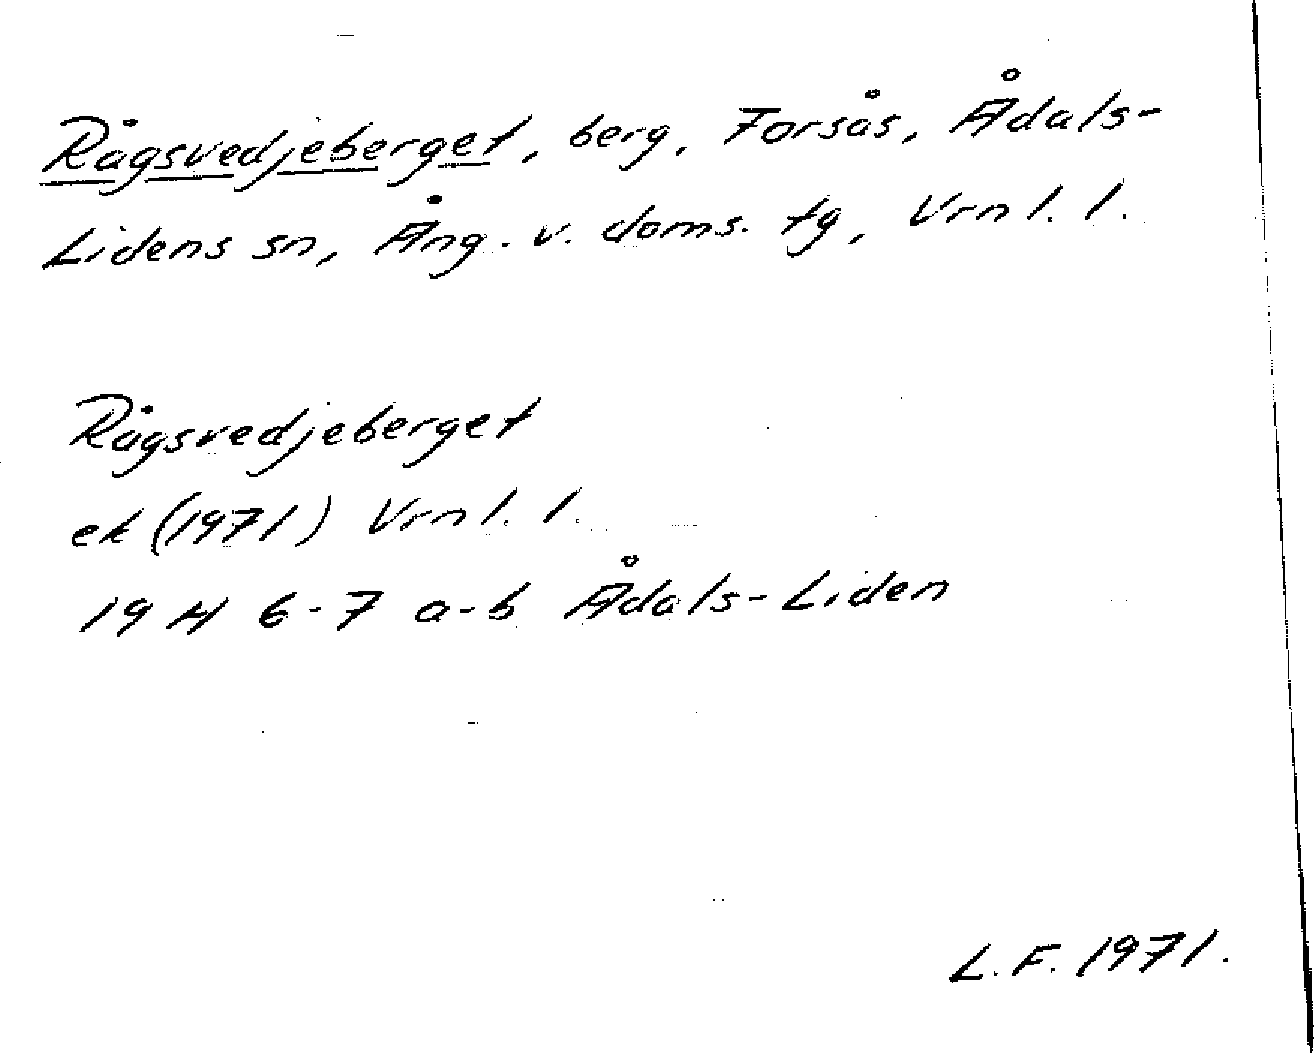 Rågsvedjeberget, berg, Forsås, Ådals-
Lidens sn, Ång. v. doms. tg, Vrnl. l.
Rågsvedjeberget
ek (1971) Vrnl. l.
19 H 6-7 a-b Ådals-Liden
L.F. 1971.